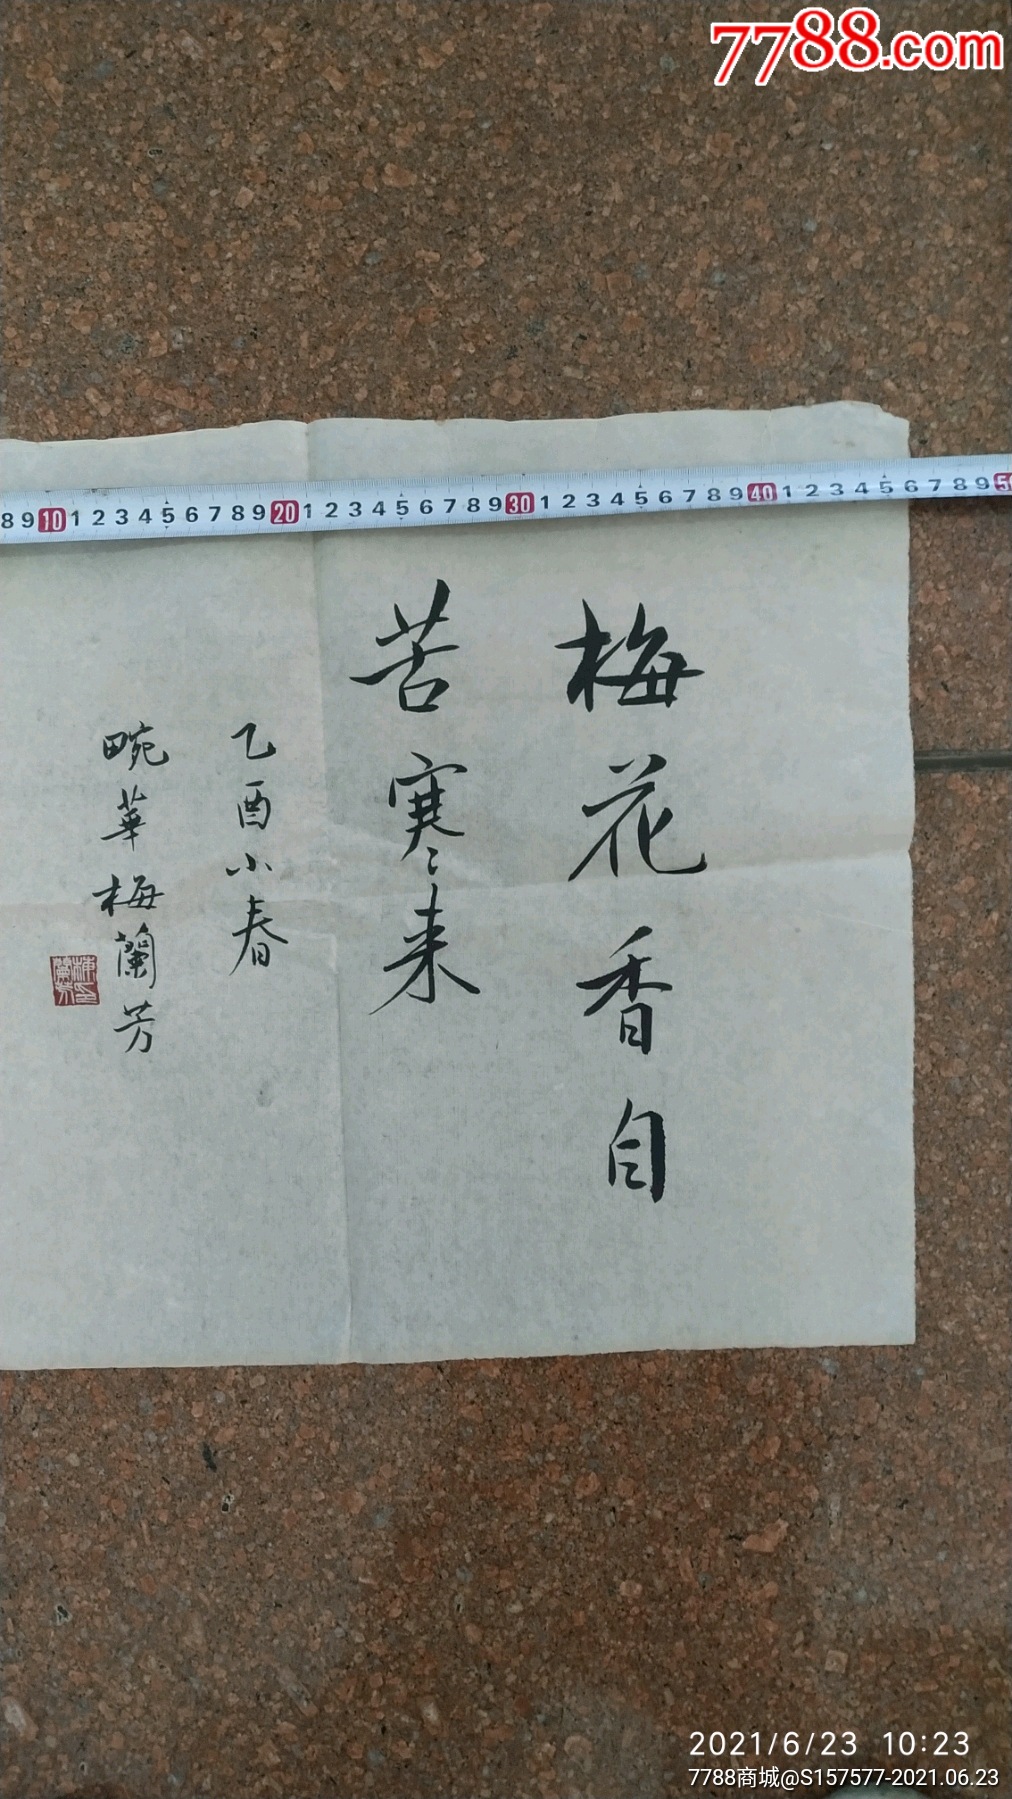 7788.com
8 9 10 1 2 3 4 5 6 7 8 9 20 1 2 3 4 5 6 7 8 9 30 1 2 3 4 5 6 7 8 9 40 1 2 3 4 5 6 7 8 9 50
梅花香自
苦寒来
乙酉小春
畹華梅蘭芳
2021/6/23 10:23
7788商城@S157577-2021.06.23